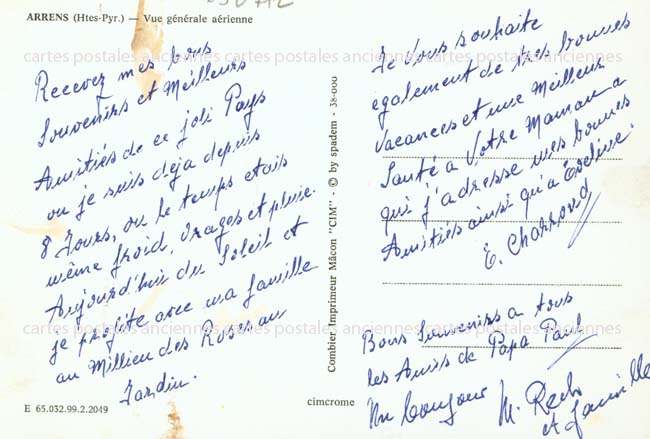 ARRENS (Htes-Pyr.) — Vue générale aérienne
Recevez mes bons
Souvenirs et Meilleurs
Amitiés de ce joli Pays
ou je suis deja depuis
8 Jours, ou le temps etais
même froid, Orages et pluie.
Aujourd'hui du Soleil et
je profite avec ma famille
au Millieu des Roseau
Jardin.
E 65.032.99.2.2049
cimcrome
Combier Imprimeur Mâcon "CIM" - © by spadem - 38-000
Je Vous souhaite
egalement de tres bonnes
Vacances et une Meilleur
Santé a Votre Maman a
qui j'adresse mes bonnes
Amitiés ainsi qu'a Eveline.
E. Charrond
Bons Souvenirs a tous
les Amis de Papa Paul
Un bonjour M.
et famille
cartes postales anciennes cartes postales anciennes cartes postales anciennes
cartes postales anciennes cartes postales anciennes cartes postales anciennes